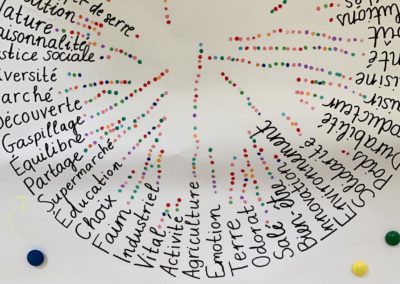 de serre
ution
ature
aisonnalité
stice sociale
iversité
arché
Découverte
Gaspillage
Équilibre
Partage
Supermarché
Éducation
Choix
Faim
Industriel
Vital
Activité
Agriculture
Emotion
Terre
Odorat
Salé
Bien-être
Innovation
Environnement
Solidarité
Poids
Durabilité
oducteur
isine
nté
oût
lutions